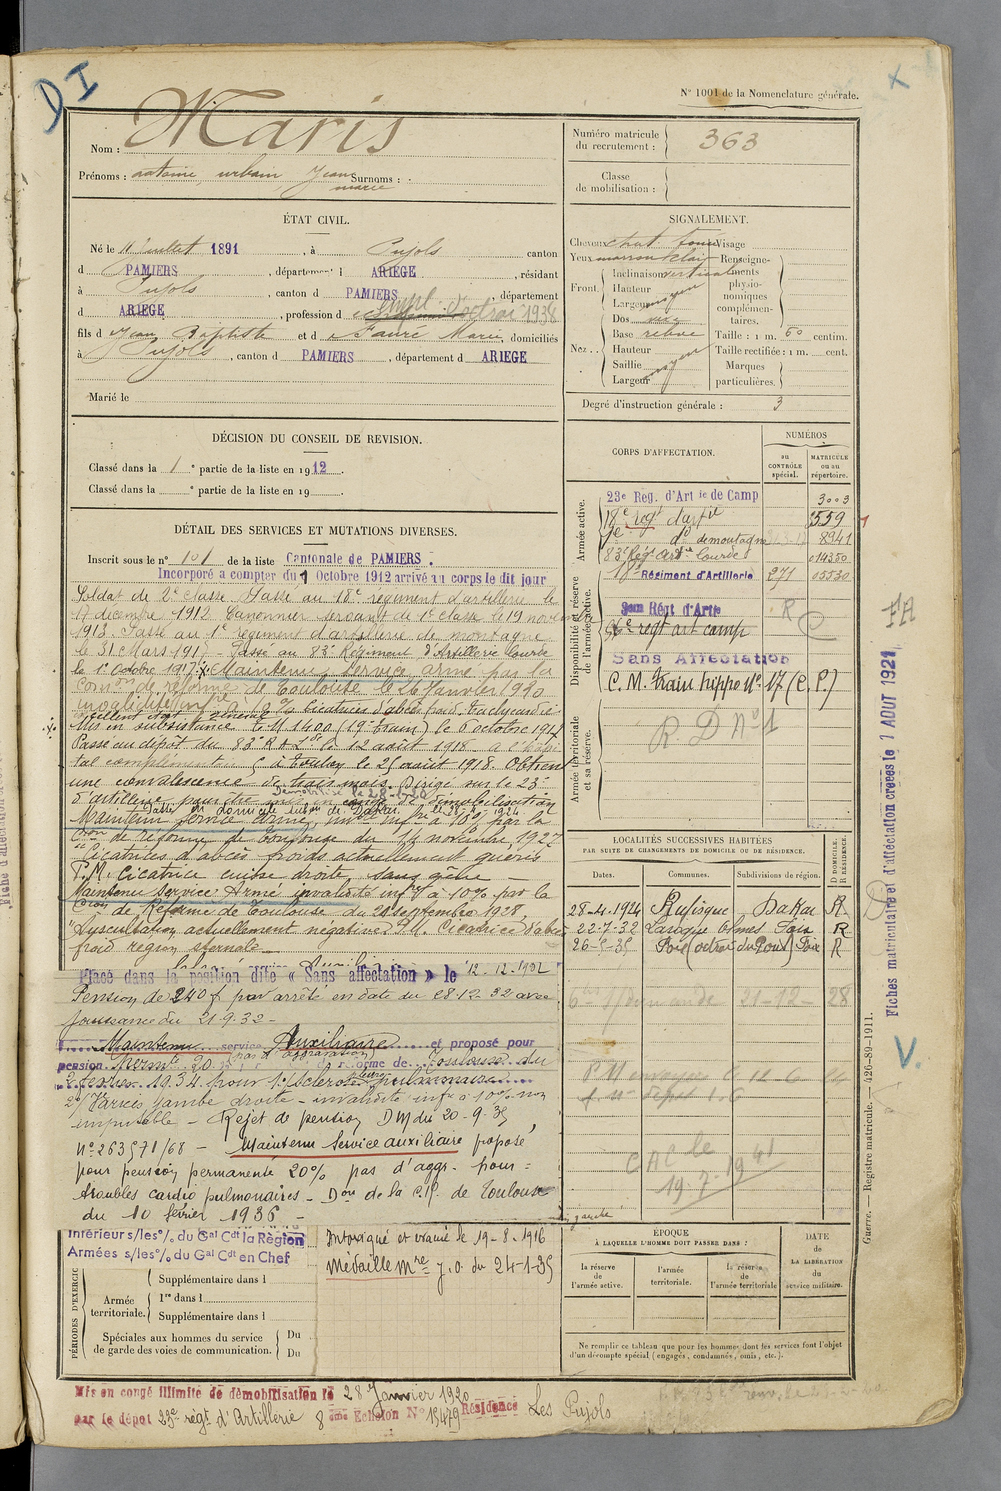 DI
N° 1001 de la Nomenclature générale.
Nom : Maris
Prénoms : Antoine, urbain Jean Surnoms :
marie
Numéro matricule du recrutement : 363
Classe de mobilisation :
ÉTAT CIVIL.
Né le Juillet 1891, à Pujols canton
d PAMIERS, département d ARIEGE, résidant
à Pujols, canton d PAMIERS, département
d ARIEGE, profession d d'octroi 1938
fils d Jean Baptiste et d Faure Marie, domiciliés
à Pujols, canton d PAMIERS, département d ARIEGE
Marié le
SIGNALEMENT.
Cheveux chat foncé Visage
Yeux marron clair Renseigne-
Front. Inclinaison verticale ments
Hauteur moyen physio-
Largeur nomiques
Nez. Dos complémen-
taires.
Base relevé Taille : 1 m. 60 centim.
Hauteur moyen Taille rectifiée : 1 m. cent.
Saillie Marques
Largeur particulières.
Degré d'instruction générale : 3
DÉCISION DU CONSEIL DE REVISION.
Classé dans la 1 e partie de la liste en 1912.
Classé dans la e partie de la liste en 19
DÉTAIL DES SERVICES ET MUTATIONS DIVERSES.
Inscrit sous le n° 101 de la liste Cantonale de PAMIERS.
Incorporé a compter du 1 Octobre 1912 arrivé au corps le dit jour
Soldat de 2e classe. Passé au 18e régiment d'artillerie le
17 décembre 1912 Canonnier servant de 1e classe le 19 novembre
1913. Passé au 1e régiment d'artillerie de montagne
le 31 Mars 1917 - Passé au 83e Régiment d'Artillerie Lourde
le 1e Octobre 1917. Maintenu service armé par la
Comon de réforme de Toulouse le 26 Janvier 1920
invalidité inf à 10 % cicatrices d'abcès froid. tachycardie
excellent état général
Mis en subsistance le 6 octobre 1917
Passé au dépôt du 83e R A L le 12 août 1918 a l'hôpi
tal complément à Toulon le 25 août 1918. Obtient
une convalescence de trois mois. Dirigé sur le 23e
d'artillerie pour être mis en congé de démobilisation
Démobilisé le 28-1-1920
Maintenu service armé, inv inf à 10% par la
Con de réforme de Toulouse du 14 novembre 1927
"Cicatrices d'abcès froids actuellement guéris
P.M. cicatrice cuisse droite, sans gêne -
Maintenu Service Armé invalidité inf à 10% par la
Con de Réforme de Toulouse du 20 septembre 1928,
"Auscultation actuellement négative P.M. Cicatrice d'abcès
froid région sternale
Placé dans la position dite « Sans affectation » le 12-12-1932
Pension de 240 f par arrêté en date du 28-12-32 avec
jouissance du 21-9-32 -
Maintenu service Auxiliaire et proposé pour
pension perm 20 (pas d'aggravation) réforme de Toulouse du
2 février 1934 pour 1°/ Sclérose pulmonaire
2°/ Varices jambe droite - invalidité inf à 10% non
imputable - Rejet de pension DM du 20-9-35
N° 263571/68 - Maintenu Service auxiliaire proposé
pour pension permanente 20% pas d'aggr. pour :
troubles cardio pulmonaires - Don de la C.R. de Toulouse
du 10 février 1936 -
CORPS D'AFFECTATION.
NUMÉROS
au CONTRÔLE spécial.
MATRICULE ou au répertoire.
Armée active.
23e Reg. d'Artie de Camp 3003
18e regt d'artie 559
1e do de montagne 8941
83e Régt Artie Lourde 014350
Disponibilité ou réserve de l'armée active.
18e Régiment d'Artillerie 271 05530
Régt d'Artie R
regt art camp
Sans Affectation
C. M. train hippo N° 17 (C. P.)
Armée territoriale et sa réserve.
R. D N° 1
LOCALITÉS SUCCESSIVES HABITÉES
PAR SUITE DE CHANGEMENTS DE DOMICILE OU DE RÉSIDENCE.
Dates. Communes. Subdivisions de région. D DOMICILE. R RÉSIDENCE.
28-4-1924 Rufisque Dakar R.
22-7-32 Laroque Olmes Foix R
26-5-35 Foix (octroi du Pont) Foix R
21-12-28
CAC le
19-7-1941
ÉPOQUE
À LAQUELLE L'HOMME DOIT PASSER DANS :
la réserve de l'armée active.
l'armée territoriale.
la réserve de l'armée territoriale
DATE de LA LIBÉRATION du service militaire.
Ne remplir ce tableau que pour les hommes dont les services font l'objet
d'un décompte spécial (engagés, condamnés, omis, etc.).
Intérieur s/les o/ du Gal Cdt la Région
Armées s/les o/ du Gal Cdt en Chef
PÉRIODES D'EXERCIC
Supplémentaire dans l
Armée territoriale. 1re dans l
Supplémentaire dans l
Spéciales aux hommes du service de garde des voies de communication. Du
Du
Intoxiqué et évacué le 19-8-1916
Médaille Mre J.O. du 24-1-35
Mis en congé illimité de démobilisation le 28 Janvier 1920
par le dépot 23e régt d'Artillerie 8 ème Echelon N° 15479 Résidence Les Pujols
Fiches matriculaire et d'affectation créées le 1 AOUT 1921
FA
V.
Guerre. — Registre matricule. — 426-89-1911.